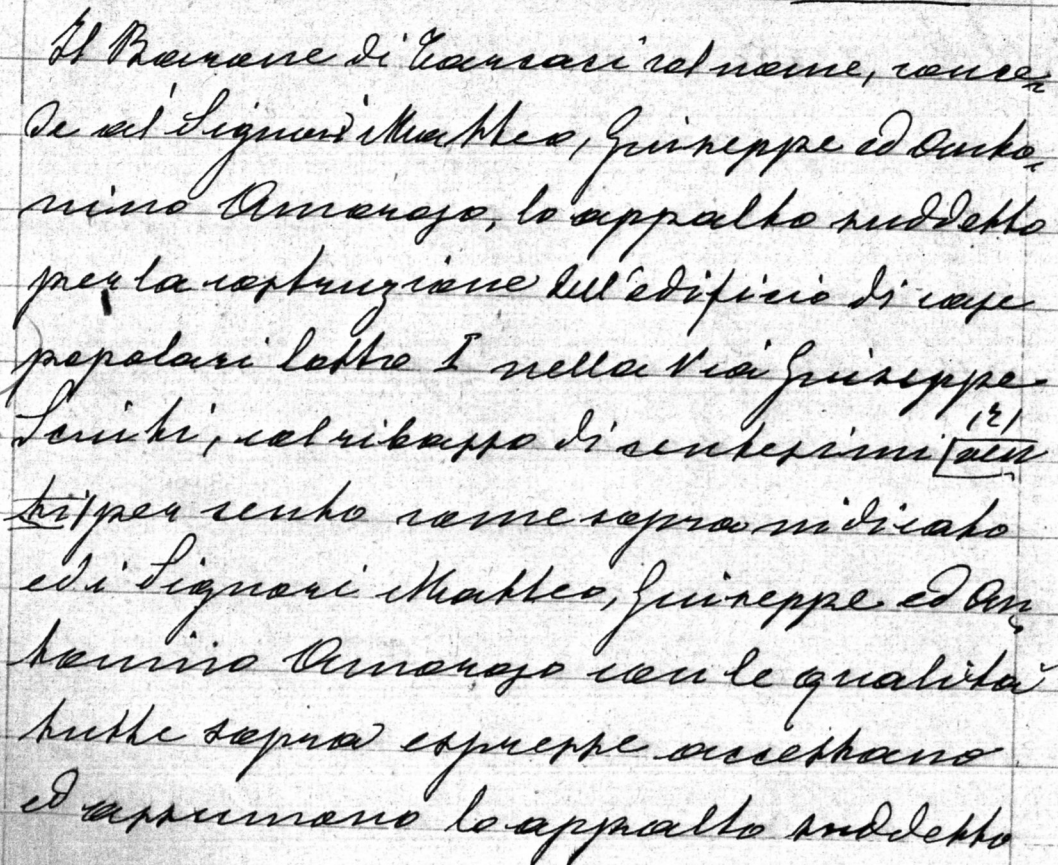 Il Barone di Tarsasi col nome, conce-
de ai Signori Matteo, Giuseppe ed Anto-
nino Amoroso, lo appalto suddetto
per la costruzione dell'edificio di case
popolari lotto I nella Via Giuseppe
Sciuti, col ribasso di centesimi
per cento come sopra indicato
ed i Signori Matteo, Giuseppe ed An-
tonino Amoroso con le qualità
tutte sopra espresse accettano
ed assumono lo appalto suddetto